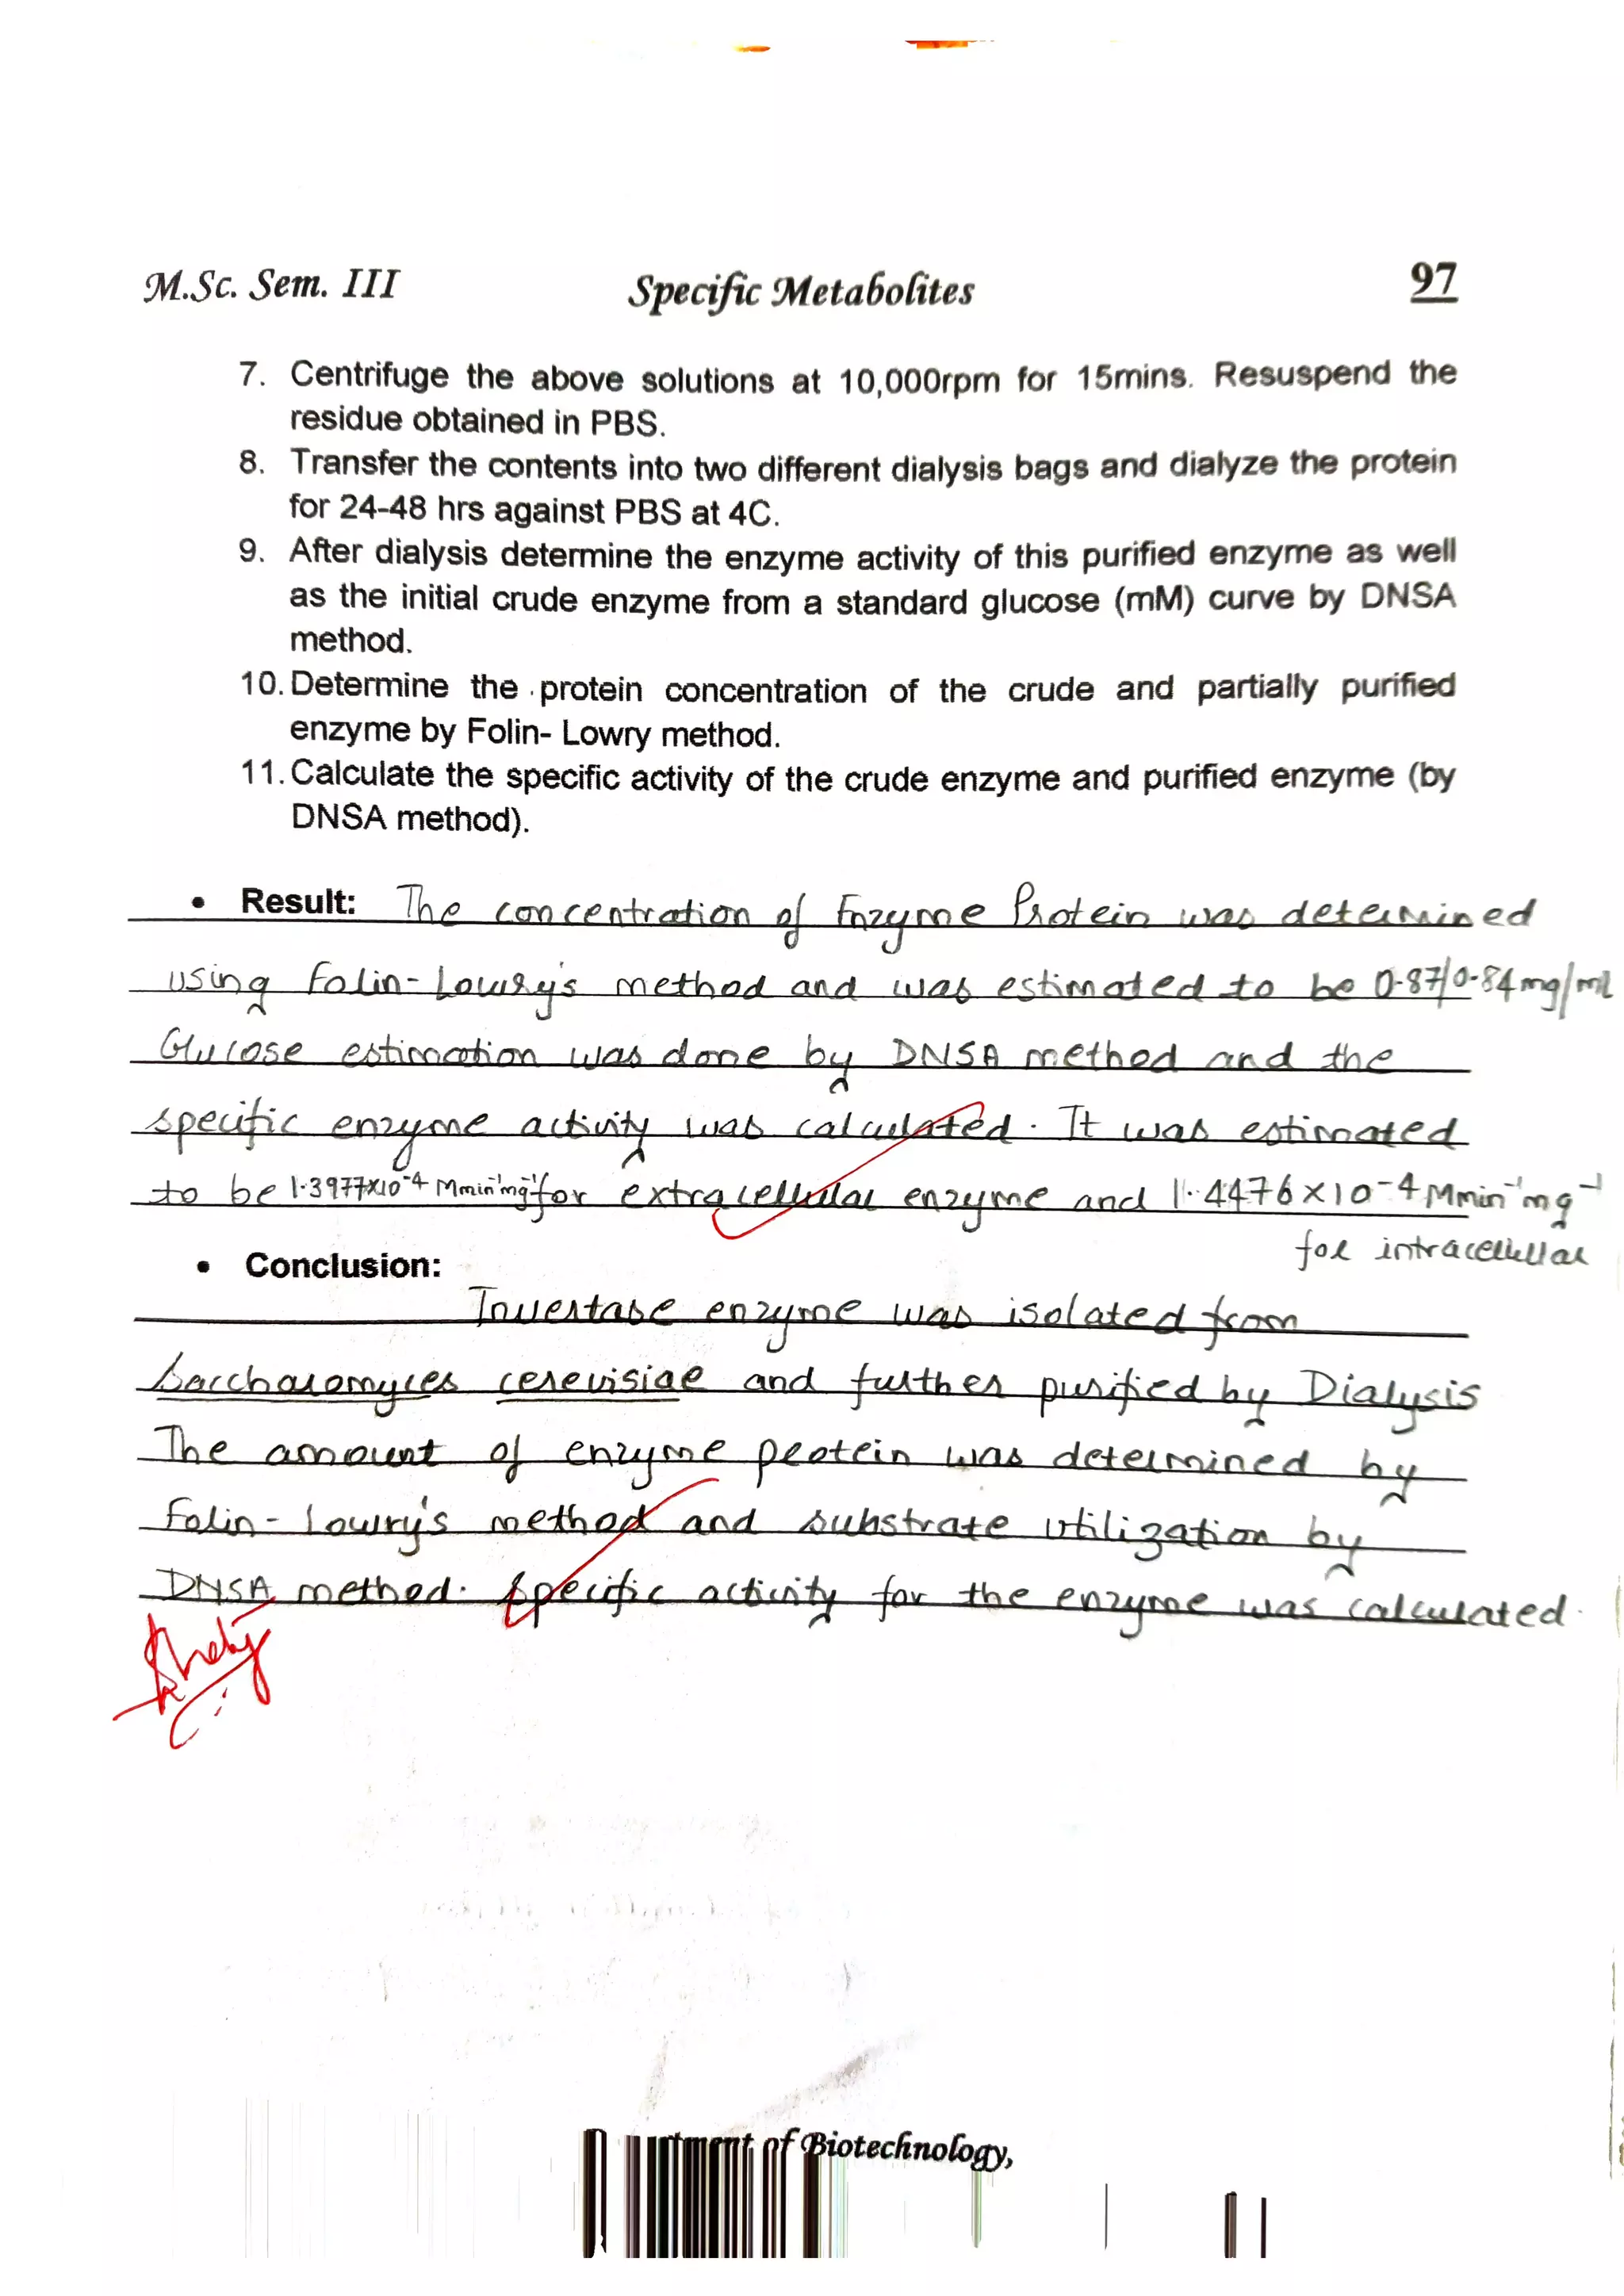 M.Sc. Sem. III Specific Metabolites 97
7. Centrifuge the above solutions at 10,000rpm for 15mins. Resuspend the
residue obtained in PBS.
8. Transfer the contents into two different dialysis bags and dialyze the protein
for 24-48 hrs against PBS at 4C.
9. After dialysis determine the enzyme activity of this purified enzyme as well
as the initial crude enzyme from a standard glucose (mM) curve by DNSA
method.
10. Determine the protein concentration of the crude and partially purified
enzyme by Folin- Lowry method.
11. Calculate the specific activity of the crude enzyme and purified enzyme (by
DNSA method).
• Result: The concentration of Enzyme Protein was determined
using Folin-Lowry's method and was estimated to be 0.87/0.84 mg/ml
Glucose estimation was done by DNSA method and the
specific enzyme activity was calculated. It was estimated
to be 1.3977x10⁻⁴ Mmin⁻¹mg⁻¹ for extracellular enzyme and 1.4476 x 10⁻⁴ Mmin⁻¹mg⁻¹
for intracellular
• Conclusion:
Invertase enzyme was isolated from
Saccharomyces cerevisiae and further purified by Dialysis
The amount of enzyme protein was determined by
Folin-Lowry's method and substrate utilization by
DNSA method. Specific activity for the enzyme was calculated.
of Biotechnology,